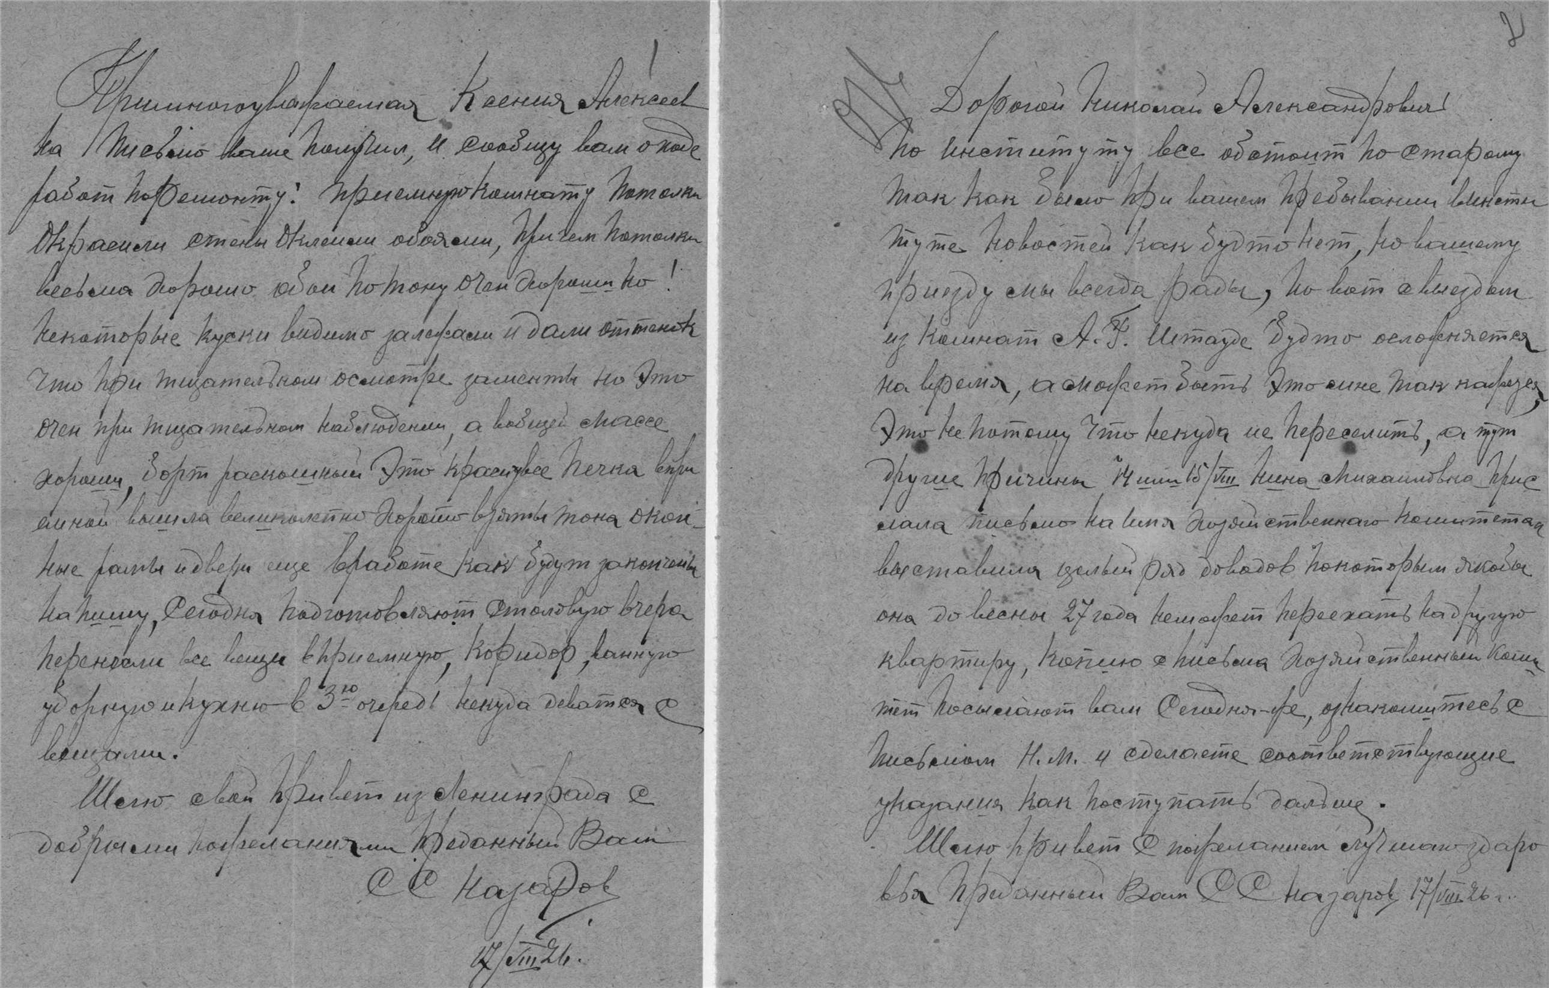 Примногоуважаемая Ксения Алексеев
на! Письмо ваше получил, и сообщу вам о ходе
работ по ремонту: приемную комнату потолки
окрасили стены оклеили обоями, причем потолки
весьма хорошо обои по тону очен хороши но!
некоторые куски видимо залежали и дали оттенок
что при тщательном осмотре заметны но это
очен при тщательном наблюдении, а вобщей массе
хороши, борт раскошный это красивее печка в при
емной вышла великолепно хорошо взяты тона окон-
ные рамы и двери еще в работе как будут закончены
напишу, Сегодня подготовляют столовую вчера
перенесли все вещи в приемную, коридор, ванную
уборную и кухню в 3ю очередь некуда деватся с
вещами.
Шлю свой привет из Ленинграда с
добрыми пожеланиями преданный Вам
С С Назаров
17/VIII 26.
2
Дорогой Николай Александрович!
по институту все обстоит по старому
так как было при вашем пребывании в инсти
туте новостей как будто нет, но вашему
приезду мы всегда рады, но вот с выездом
из комнат А. Г. Штауде будто осложняется
на время, а может быть это мне так кажется,
это не потому что некуда не переселить, а тут
другие причины 14 или 15/VIII Нина Михаиловна прис
лала письмо на имя хозяйственнаго комитета и
выставила целый ряд доводов по которым якобы
она до весны 27 года неможет переехать на другую
квартиру, копию с письма хозяйственный коми
тет посылают вам Сегодня-же, ознакомитесь с
письмом Н. М. и сделаете соответствующие
указания как поступать дальше.
Шлю привет с пожеланием лучшаго здоро
вья преданный Вам С С Назаров 17/VIII 26 г.